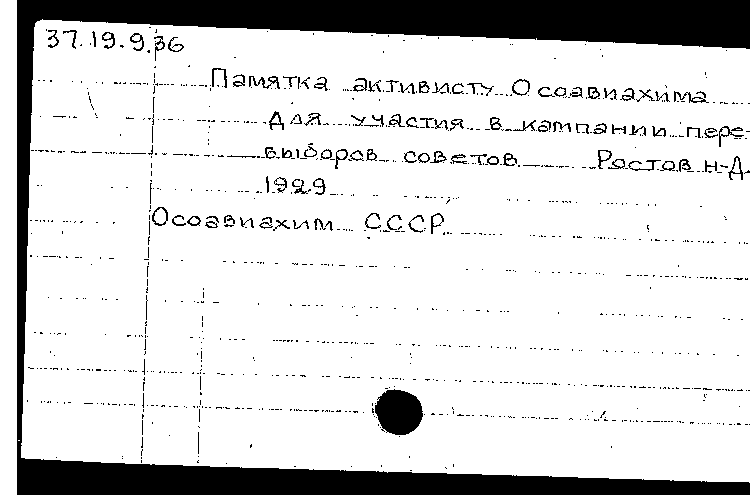 37.19.9.36
Памятка активисту Осоавиахима
для участия в кампании пере-
выборов советов Ростов н-Д.
1929
Осоавиахим СССР